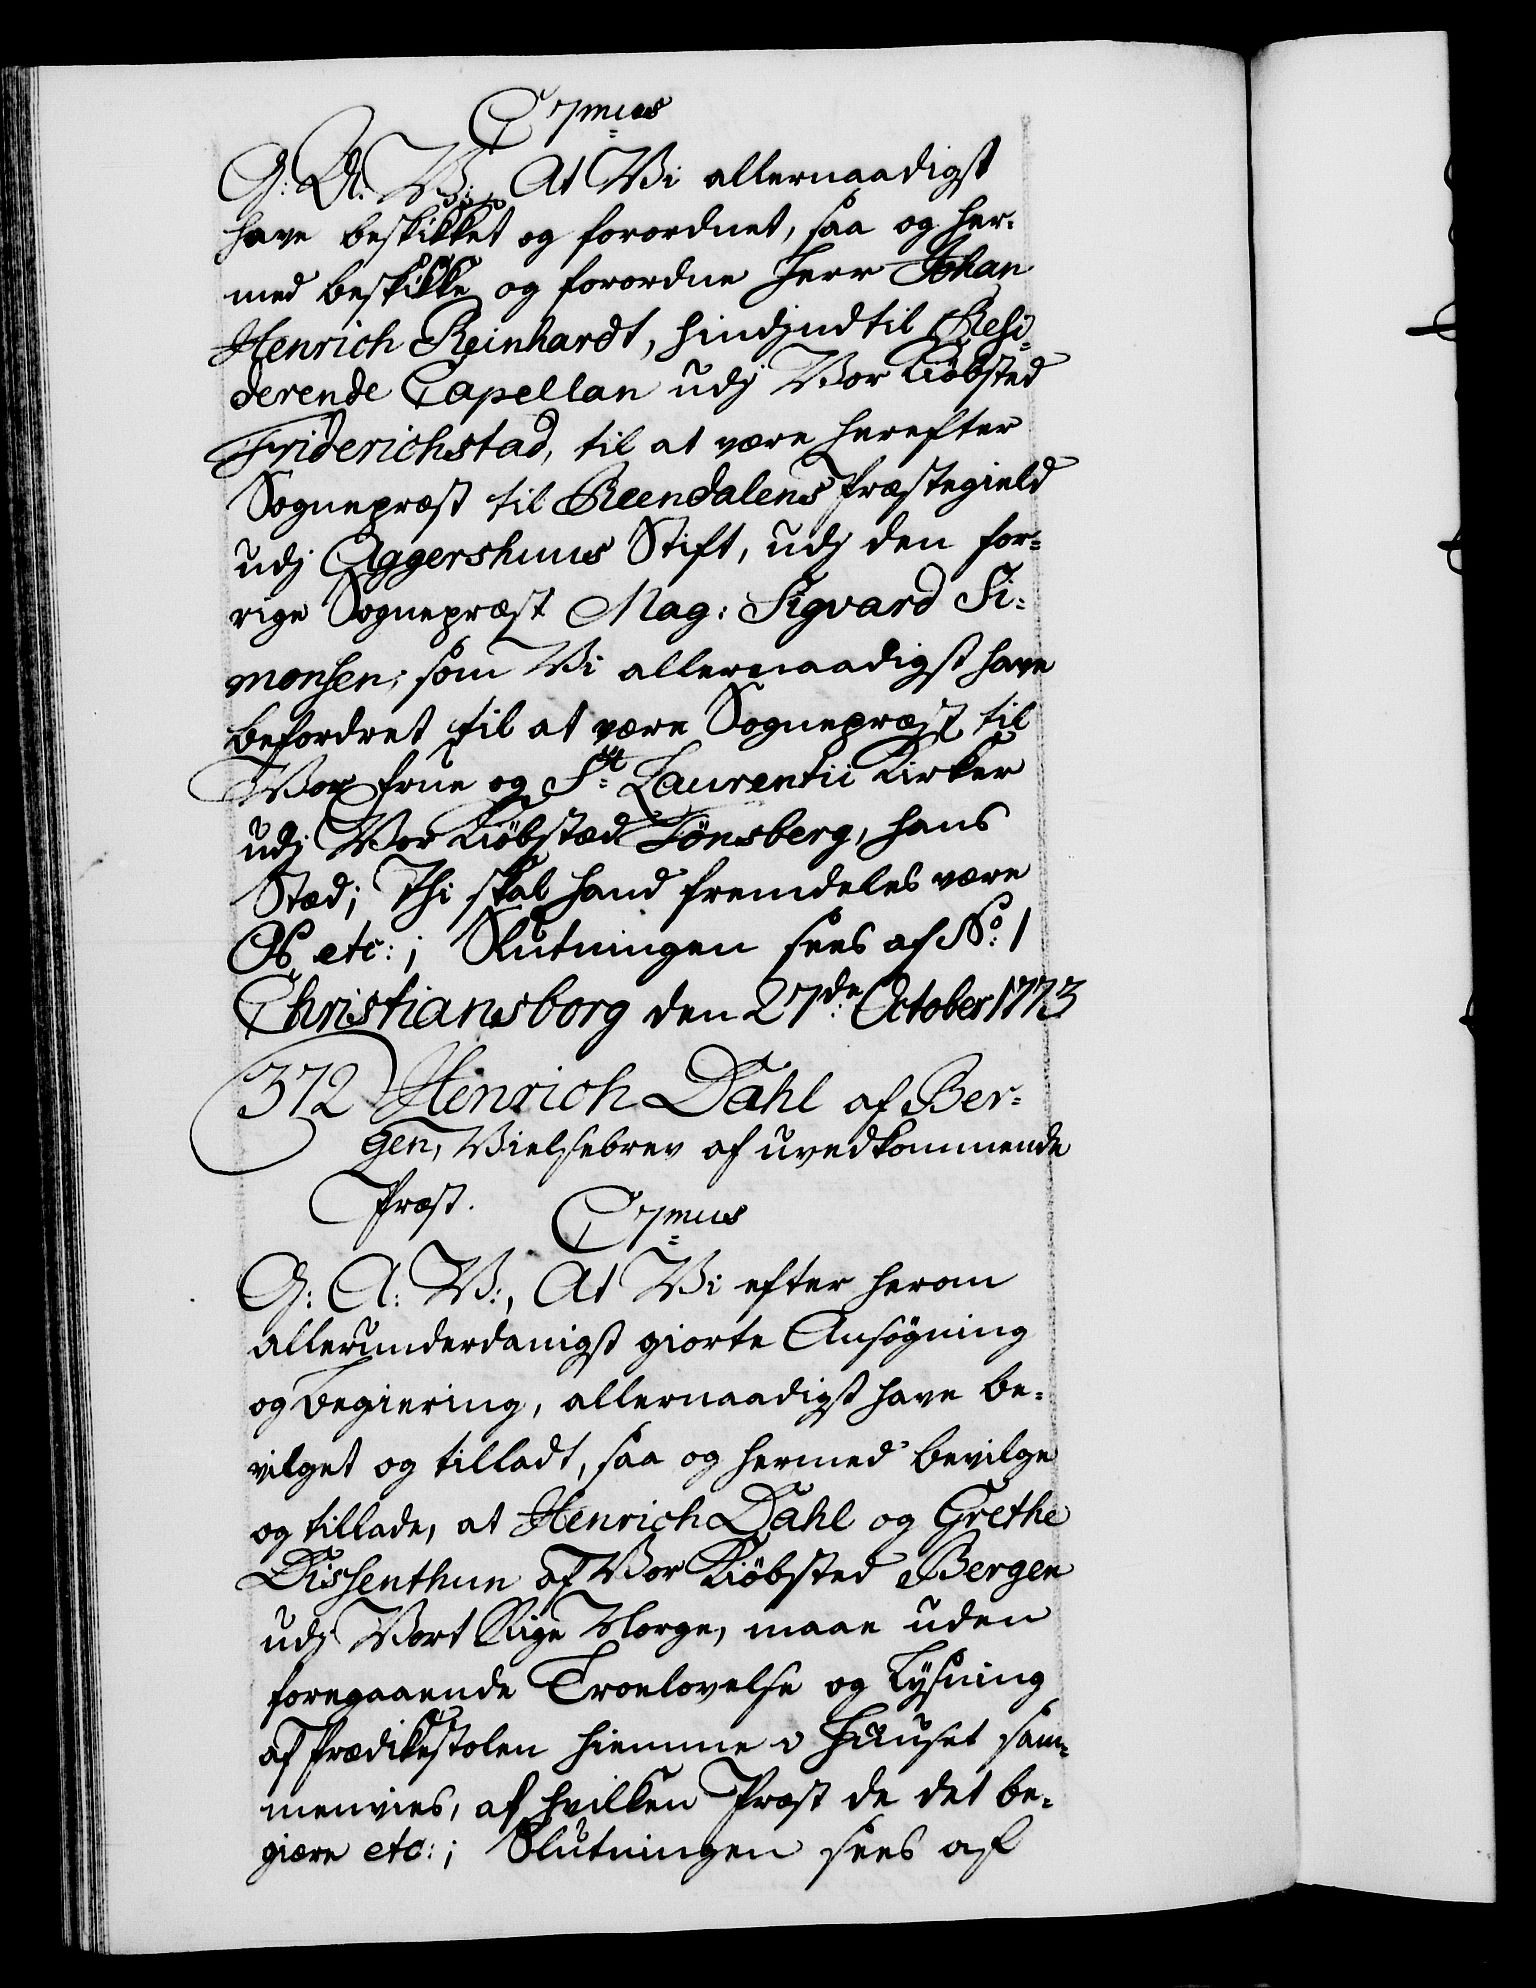 C 7mus
G: A: V:, At Vi allernaadigst
have beskikket og forordnet, saa og her-
med beskikke og forordne Herr Johan
Henrich Reinhardt, hindindtil Resi-
derende Capellan udj Vor Kiöbsted
Friderichstad, til at være herefter
Sognepræst til Reendalens Præstegield
udj Aggershuus Stift, udj den for-
rige Sognepræst Mag: Sigvard Si-
monsen, som Vi allernaadigst have
befordret til at være Sognepræst til
Vor Frue og St: Laurentii Kirker
udj Vor Kiöbstæd Tönsberg, hans
Stæd; Thi skal hand fremdeles være
Os etc:; Slutningen sees af No: 1
Christiansborg den 27de October 1773
372 Henrich Dahl af Ber-
gen, Vielsebrev af uvedkommende
Præst. C 7mus
G: A: V:, At Vi efter herom
allerunderdanigst giorte Ansøgning
og Begiering, allernaadigst have be-
vilget og tilladt, saa og hermed bevilge
og tillade, at Henrich Dahl og Grethe
Dissenthun af Vor Kiöbsted Bergen
udj Vort Rige Norge, maae uden
foregaaende Troelovelse og Lysning
af Prædikestolen hiemme i Huuset sam-
menvies, af hvilken Præst de det be-
giære etc:; Slutningen sees af